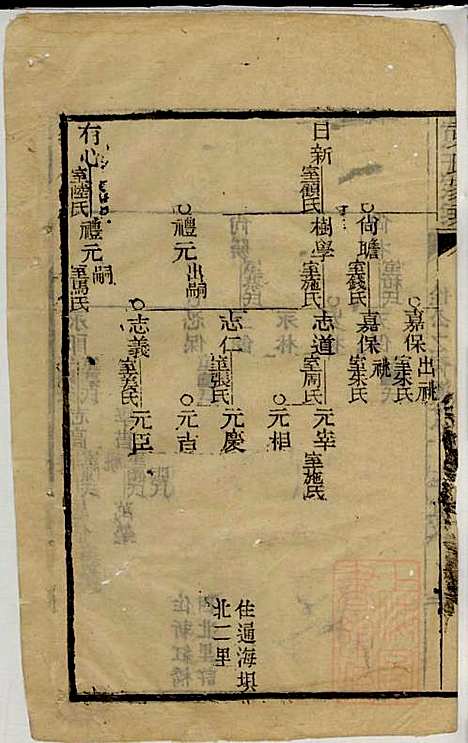 日新
室顧氏
有心
室陸氏
尙瞻
室錢氏
樹學
室施氏
禮元
出嗣
禮元
嗣
室馮氏
嘉保
出祧
室朱氏
嘉保
祧
室朱氏
志道
室周氏
志仁
室張氏
志義
室姜氏
元宰
室施氏
元相
元慶
元吉
元臣
住通海垻
北二里